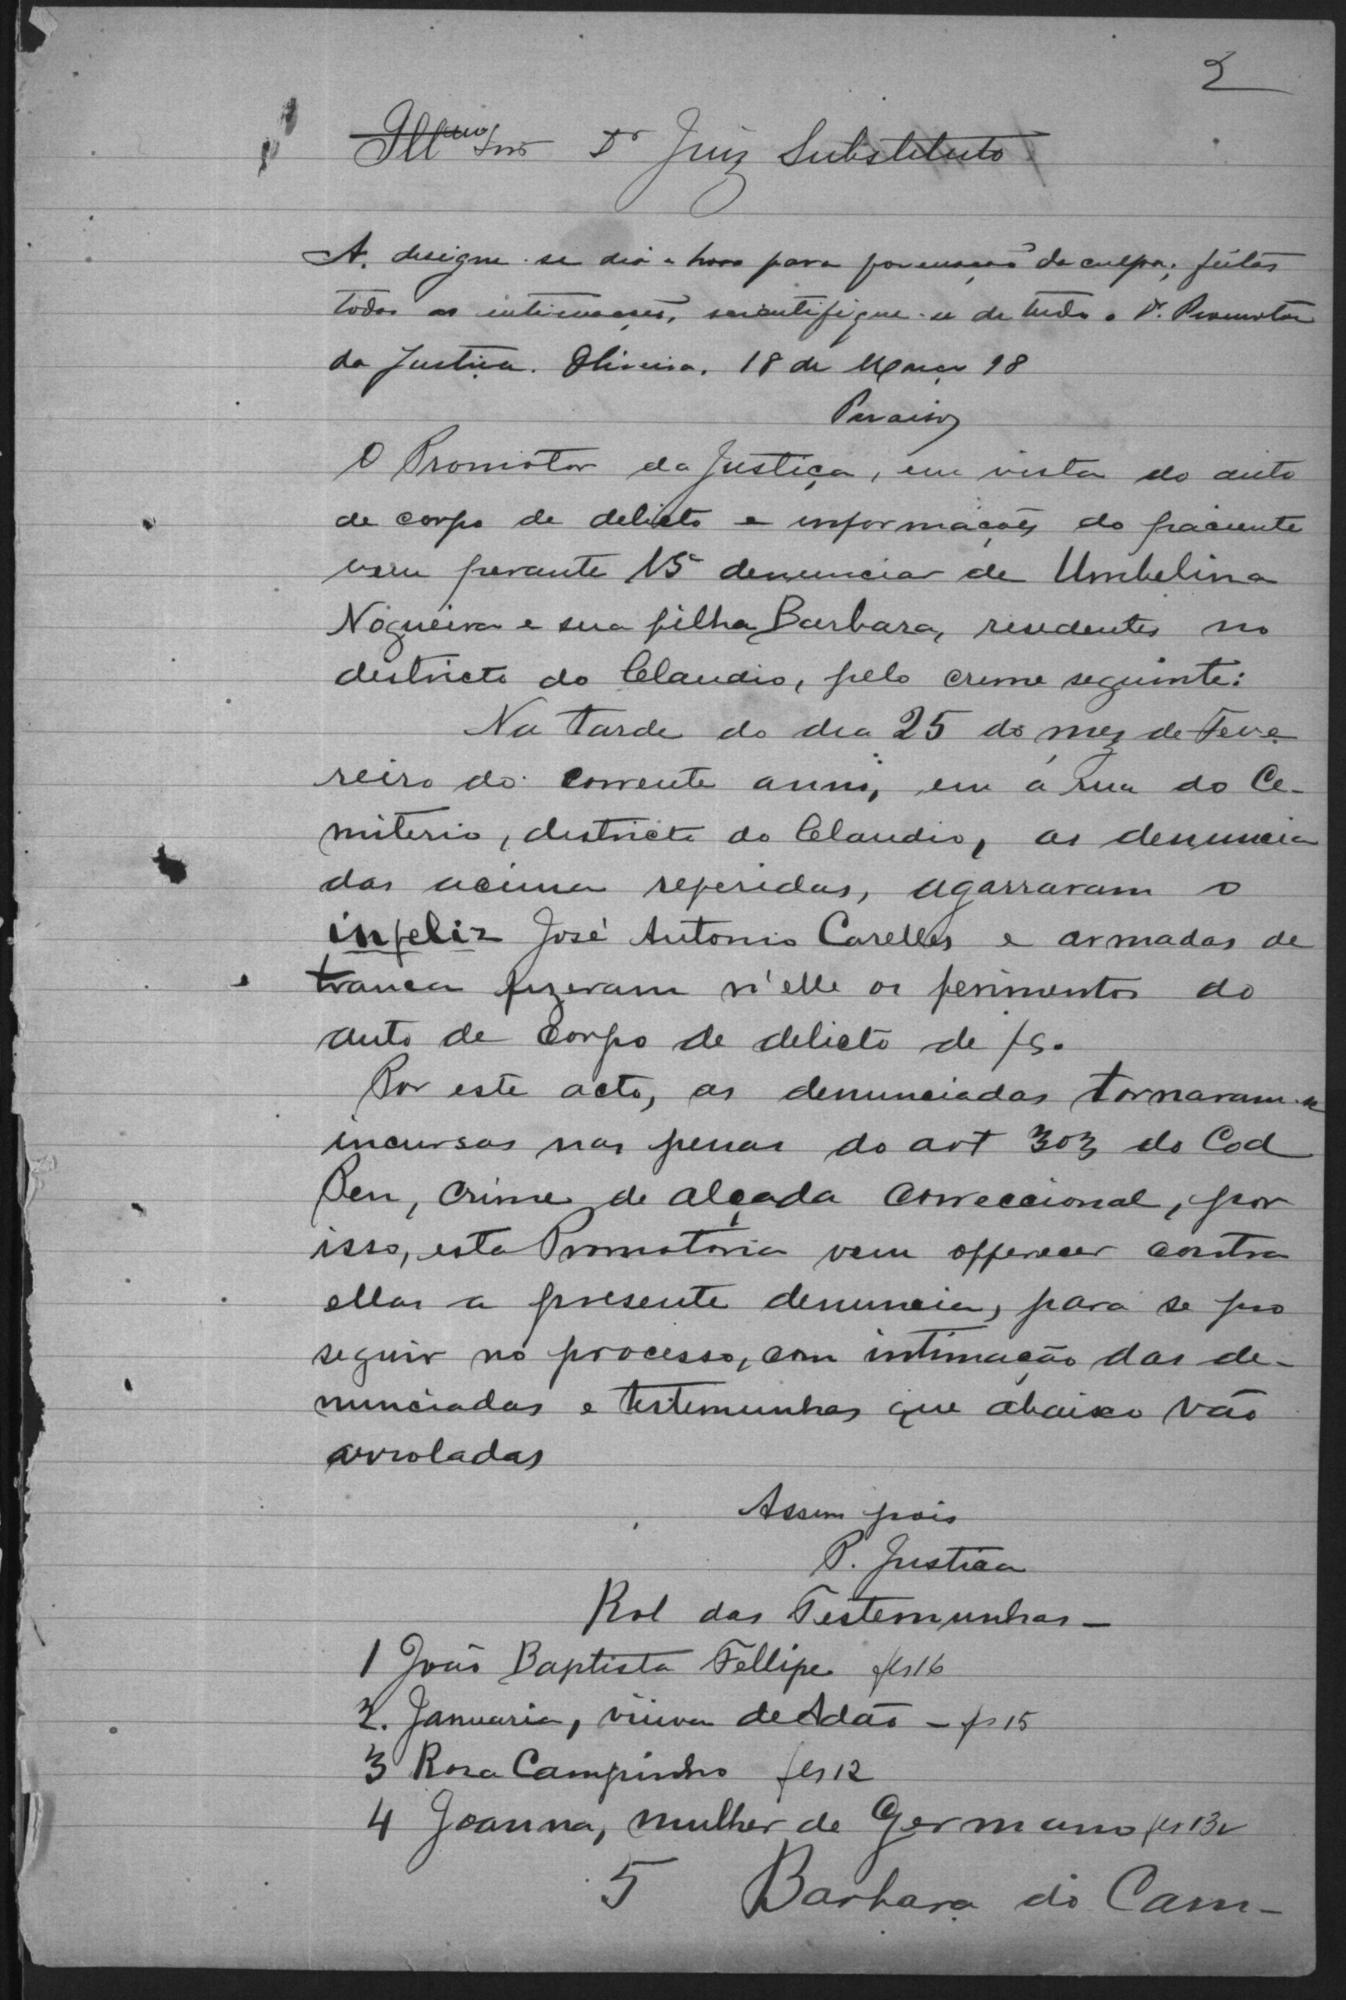 2
Illmo Snr Dr Juiz Substituto
A. designe-se dia e hora para formação da culpa; feitas
todas as intimações, scientifique-se de tudo o Dr. Promotor
da Justiça. Oliveira, 18 de Março 98
Paraiso
O Promotor da Justiça, em vista do auto
de corpo de delicto e informações do paciente
vem perante VS denunciar de Umbelina
Nogueira e sua filha Barbara, residentes no
districto do Claudio, pelo crime seguinte:
Na tarde do dia 25 do mez de Feve
reiro do corrente anno, em a rua do Ce-
miterio, districto do Claudio, as denuncia
das acima referidas, agarravam o
infeliz José Antonio Carelles e armadas de
tranca fizeram n'elle os ferimentos do
auto de corpo de delicto de fs.
Por este acto, as denunciadas tornaram-se
incursas nas penas do art 303 do Cod
Pen, crime de alçada correccional, por
isso, esta Promotoria vem offerecer contra
ellas a presente denuncia, para se pro
seguir no processo, com intimação das de-
nunciadas e testemunhas que abaixo vão
arroladas
Assim pois
P. Justiça
Rol das Testemunhas—
1 João Baptista Fellipe fls 16
2. Januaria, viuva de Adão — fs 15
3 Rosa Campinho fls 12
4 Joanna, mulher de Germano fls 13v
5 Barbara do Cam-